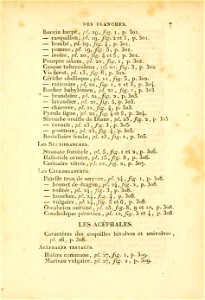 DES PLANCHES. 7
Buccin harpe, pl. 29, fig. 1, p. 301.
— casquillon, pl. 29, fig. 2 et 3, p. 301.
— bombé, pl. 29, fig. 4, p. 301.
— pomme, pl. 29, fig. 5, p. 301.
— ivoire, pl. 20, fig. 4 et 5, p. 301.
Pourpre ruban, pl. 20, fig. 1, p. 302.
Casque tuberculeux, pl. 20, fig. 3, p. 302.
pl. 23, fig. 6, p. 302.
Cérithe obélisque, pl. 21, fig. 3, p. 302.
— pl. 21, fig. 1 et 2, p. 303.
Rocher babylonien, pl. 21, fig. 1, p. 303.
— brandaire, pl. 21, fig. 2, p. 303.
— lavandier, pl. 21, fig. 3, p. 303.
— chicorée, pl. 21, fig. 4, p. 303.
Pyrule figue, pl. 20, fig. 4 et 5, p. 304.
Strombe oreille de Diane, pl. 23, fig. 2, p. 305.
— pl. 23, fig. 3, p. 305.
— goutteux, pl. 23, fig. 4, p. 305.
Rostellaire fusée, pl. 23, fig. 1, p. 305.
LES SCUTIBRANCHES.
Stomate fasciole, pl. 8, fig. 1 et 2, p. 306.
Haliotide cernier, pl. 15, fig. 8, p. 306.
Carinaire vitrée, pl. 10, fig. 2, p. 307.
LES CYCLOBRANCHES.
Patelle tres de marine, pl. 24, fig. 1, p. 308.
— bonnet de dragon, pl. 24, fig. 2, p. 308.
— pl. 24, fig. 3, p. 308.
— bouclier, pl. 24, fig. 4, p. 308.
— vulgaire, pl. 24, fig. 5 et 6, p. 308.
Oscabrion marine, pl. 25, fig. 8, 9 et 10, p. 308.
Conchelipas péruvien, pl. 10, fig. 3 et 4, p. 308.
LES ACÉPHALES.
Caractères des coquilles bivalves et univalves,
pl. 26, p. 308.
ACÉPHALES TESTACÉS.
Huître commune, pl. 27, fig. 1, p. 309.
Marteau vulgaire, pl. 27, fig. 2, p. 309.